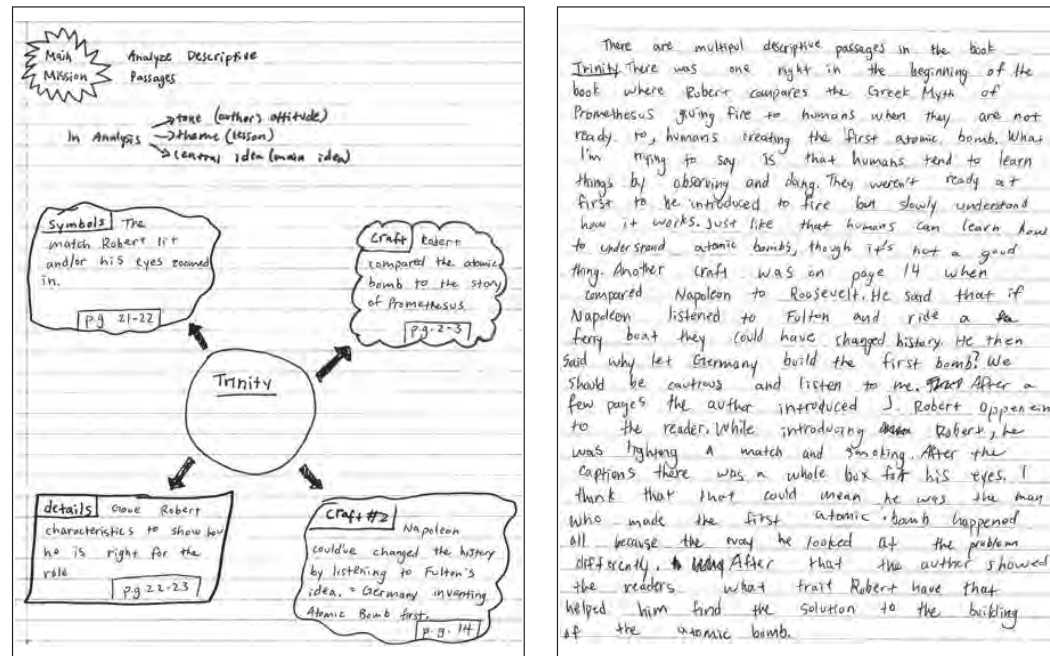 Main
Mission
Analyze Descriptive
Passages
In Analysis
tone (author's attitude)
theme (lesson)
central idea (main idea)
Symbols The
match Robert lit
and/or his eyes zoomed
in.
pg 21-22
Craft Robert
compared the atomic
bomb to the story
of Prometheus.
pg. 2-3
Trinity
details Gave Robert
characteristics to show how
he is right for the
role
pg 22-23
Craft #2 Napoleon
could've changed the history
by listening to Fulton's
idea. = Germany inventing
Atomic Bomb first.
pg. 14
There are multipul descriptive passages in the book
Trinity There was one right in the beginning of the
book where Robert compares the Greek Myth of
Prometheus giving fire to humans when they are not
ready to, humans creating the first atomic bomb. What
I'm trying to say is that humans tend to learn
things by observing and doing. They weren't ready at
first to be introduced to fire but slowly understand
how it works. Just like that humans can learn how
to understand atomic bombs, though it's not a good
thing. Another craft was on page 14 when
compared Napoleon to Roosevelt. He said that if
Napoleon listened to Fulton and ride a
ferry boat they could have changed history. He then
said why let Germany build the first bomb? We
should be cautious and listen to me. After a
few pages the author introduced J. Robert Oppenein
to the reader. While introducing Robert, he
was lighting a match and smoking. After the
captions there was a whole box for his eyes. I
think that that could mean he was the man
who made the first atomic bomb happened
all because the way he looked at the problem
differently. After that the author showed
the readers what trait Robert have that
helped him find the solution to the building
of the atomic bomb.